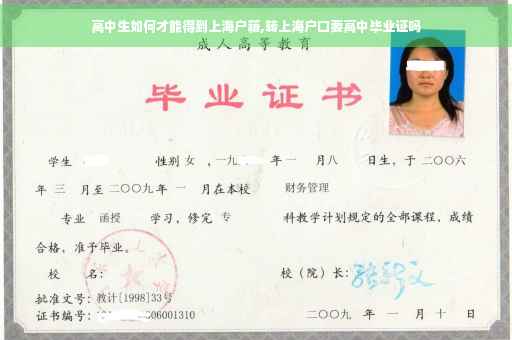 高中生如何才能得到上海户籍,转上海户口要高中毕业证吗
成人高等教育
毕业证书
学生 性别 女 ,一九 年 一 月八 日生，于 二〇〇六
年 三 月至 二〇〇九 年 一 月在本校 财务管理
专业 函授 学习，修完 专 科教学计划规定的全部课程，成绩
合格，准予毕业。
校 名： 校（院）长：
批准文号：教计[1998]33号
证书编号： 06001310 二〇〇九 年 一 月 十 日